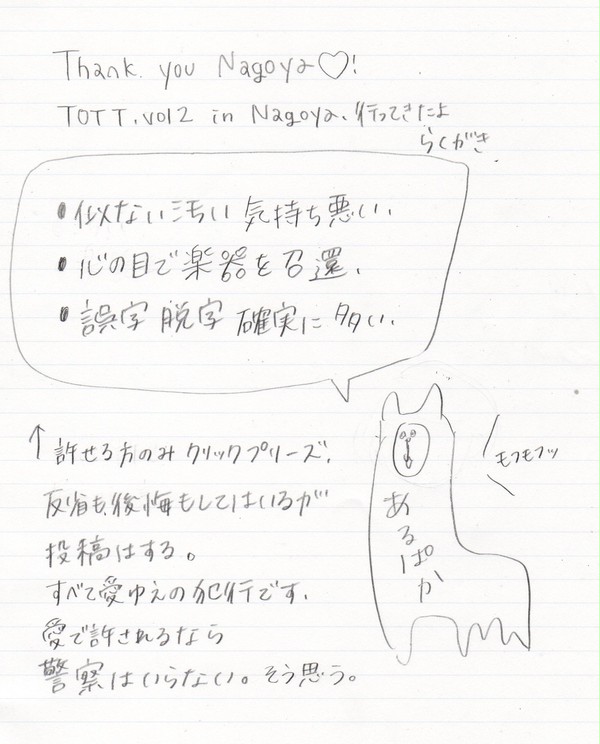 Thank you Nagoya♡!
TOTT.vol2 in Nagoya、行ってきたよ
らくがき
・似ない 汚い 気持ち悪い、
・心の目で楽器を召還、
・誤字 脱字 確実に多い、
↑許せる方のみ クリックプリーズ、
反省も、後悔もしてはいるが
投稿はする。
すべて愛ゆえの犯行です、
愛で許されるなら
警察はいらない。そう思う。
あるぱか
モフモフッ